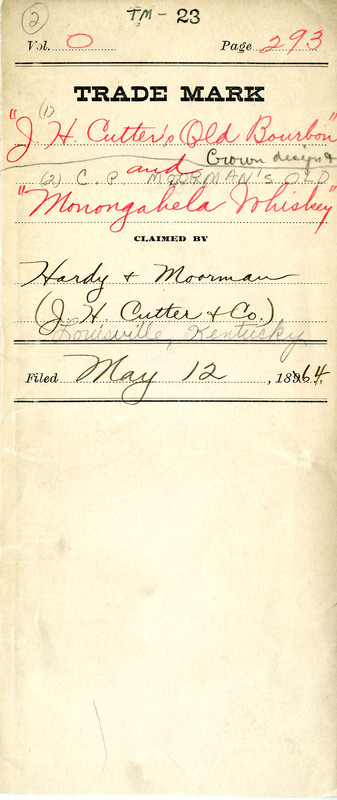 (2) TM - 23
Vol. 0 Page 293
TRADE MARK
(1)
"J. H. Cutter's Old Bourbon"
and Crown design &
(2) C. P. MOORMAN'S OLD
"Monongahela Whiskey"
CLAIMED BY
Hardy & Moorman
(J. H. Cutter & Co.)
Louisville, Kentucky
Filed May 12, 1864.